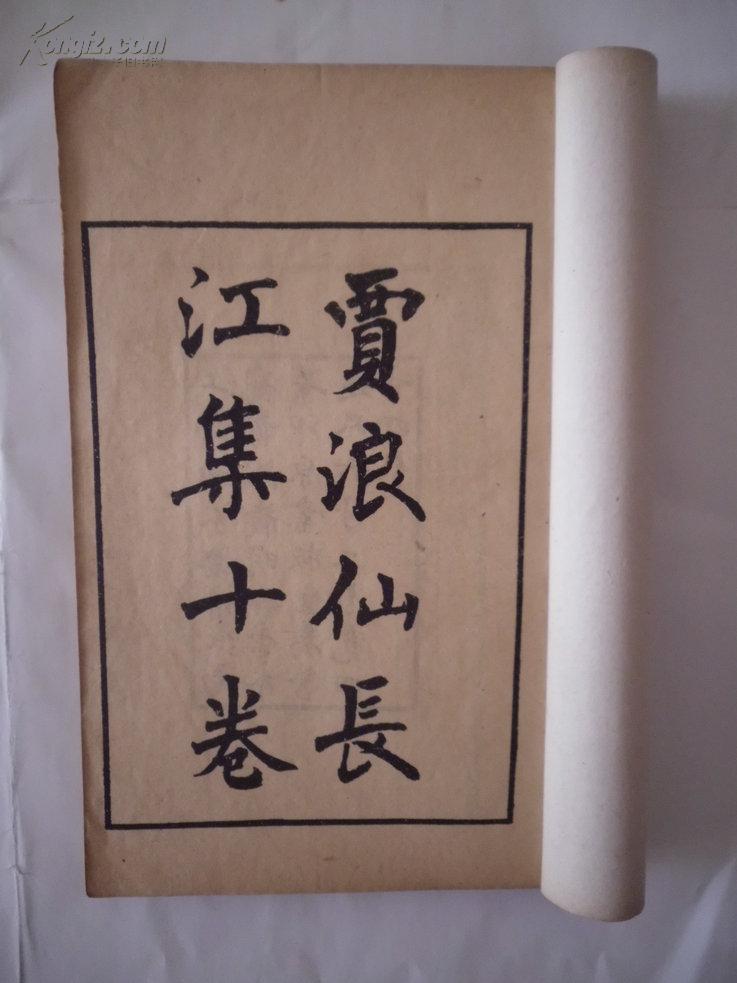 賈浪仙長
江集十卷
Kongfz.com